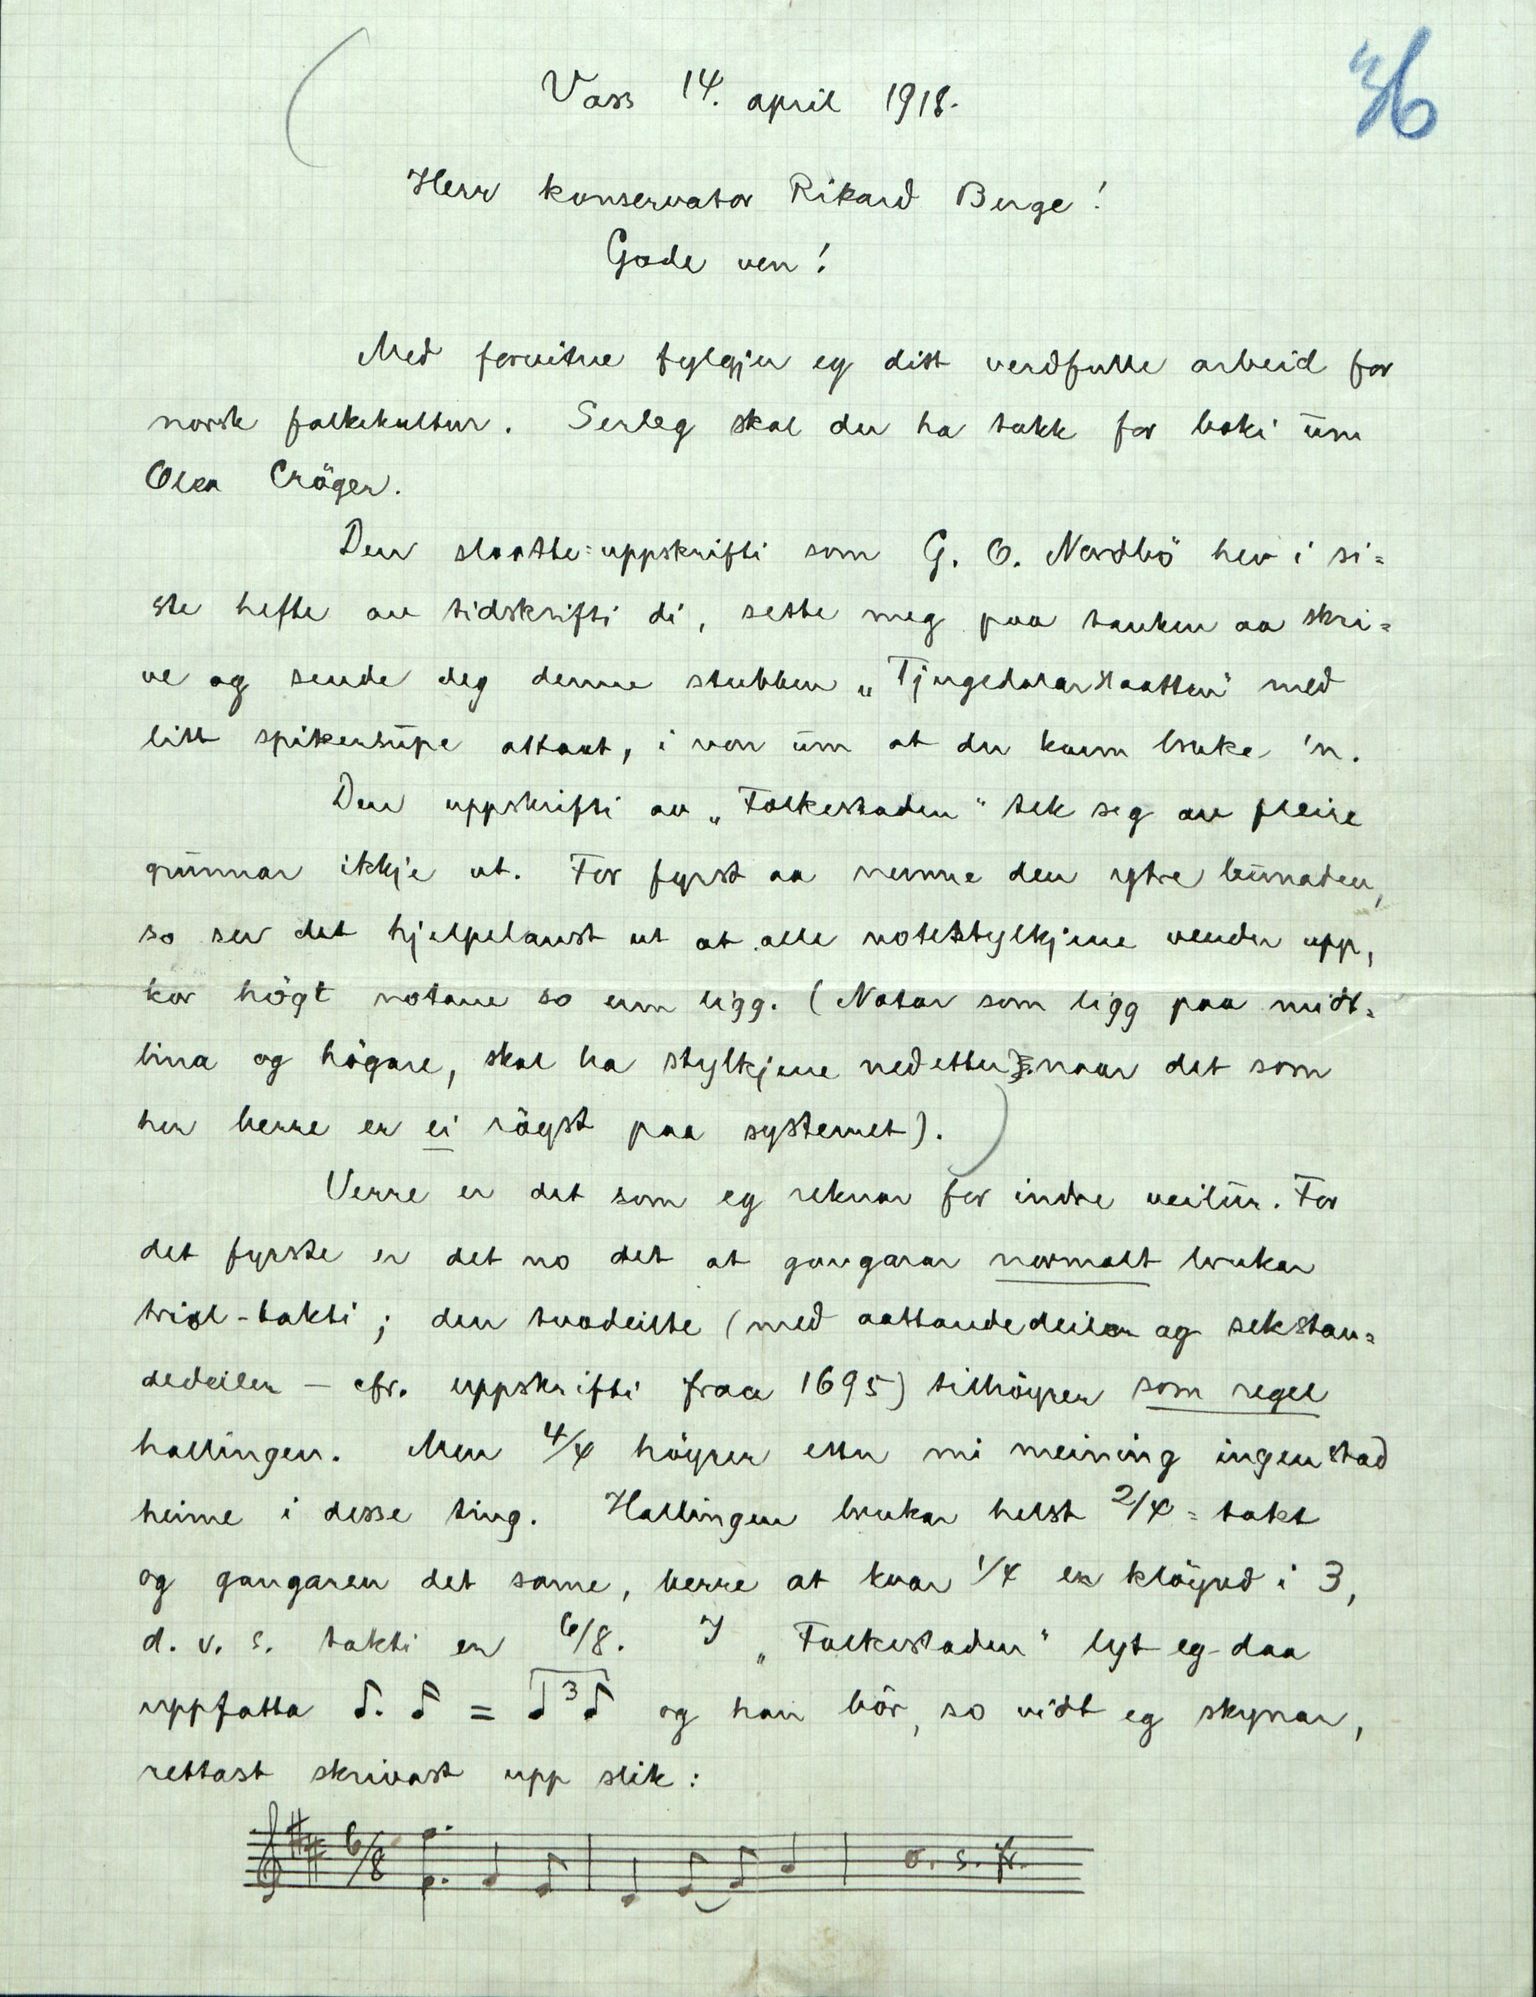 36
Voss 14. april 1918.
Herr konservator Rikard Berge!
Gode ven!
Med forvitne fylgjer eg ditt verdfulle arbeid for
norsk folkekultur. Serleg skal du ha takk for boki ūm
Olea Cröger.
Den slaatte-uppskrifti som G. O. Nordbö hev i si-
ste hefte av tidskrifti di, sette meg paa tanken aa skri-
ve og sende deg denne stubben „Tjugedalarslaatten" med
litt spikersūpe attaat, i von ūm at du kann bruke 'n.
Den uppskrifti av „Folkestaden" tek seg av fleire
grūnnar ikkje ut. For fyrst aa nemne den ytre būnaden,
so ser det hjelpelaust ut at alle notestylkjene vender upp,
kor högt notane so enn ligg. (Notar som ligg paa midt-
lina og högare, skal ha stylkjene nedetter naar det som
her berre er ei röyst paa systemet).
Verre er det som eg reknar for indre veilūr. For
det fyrste er det no det at gangarar normalt brukar
triol-takti; den tvodeilte (med aattandedeilar og sekstan-
dedeilar – cfr. uppskrifti fraa 1695) tilhöyrer som regel
hallingen. Men 4/4 höyrer etter mi meining ingenstad
heime i desse ting. Hallingen brukar helst 2/4-takt
og gangaren det same, berre at kvar 1/4 er klöyvd i 3,
d. v. s. takti er 6/8. I „Folkestaden" lyt eg daa
uppfatta ♪. ♪ = ♩3♪ og han bör, so vidt eg skynar,
rettast skrivast upp slik:
6/8 o. s. fr.